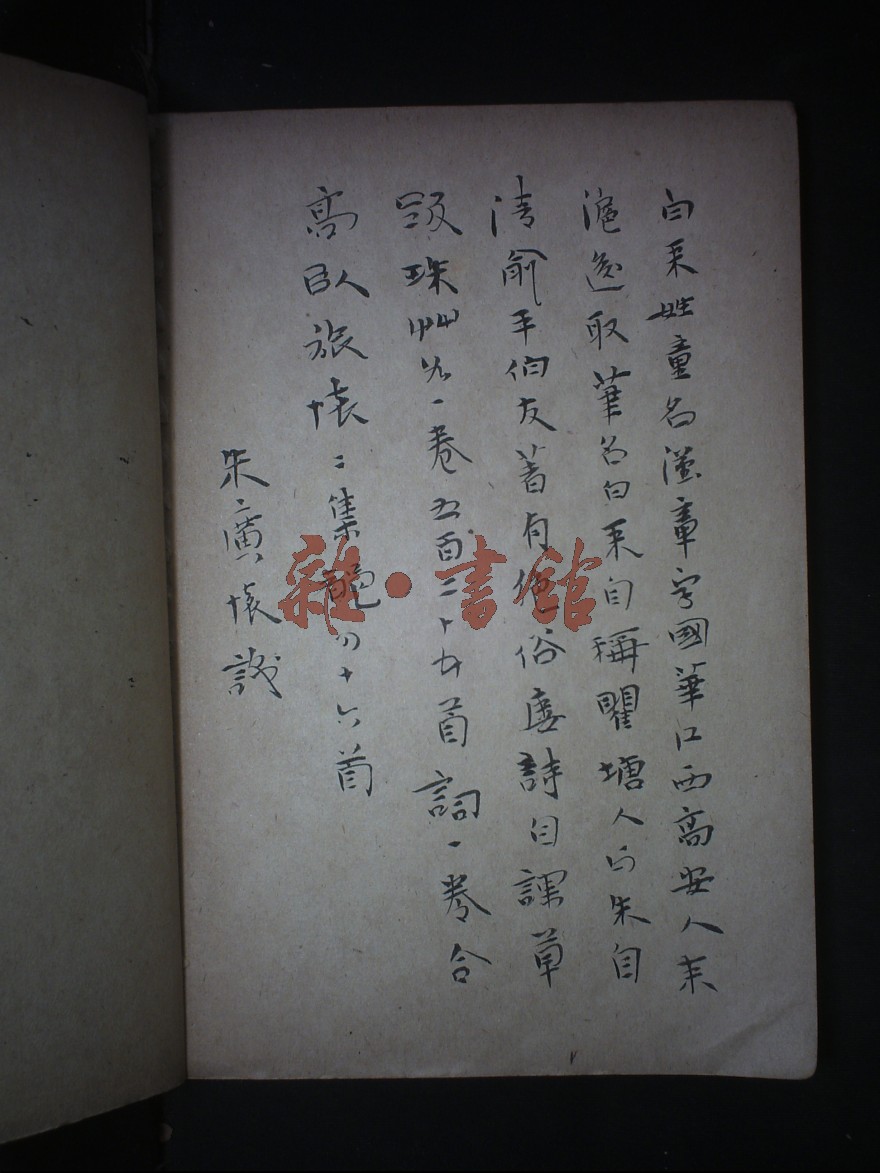 白采姓童名漢章字國華江西高安人来
滬後取筆名白采自稱瞿塘人与朱自
清俞平伯友著有絕俗廔詩日課草
珠艸一卷五百二十首詞一卷合
高臥旅懷二集四十六首
朱廣懷識
雜·書館